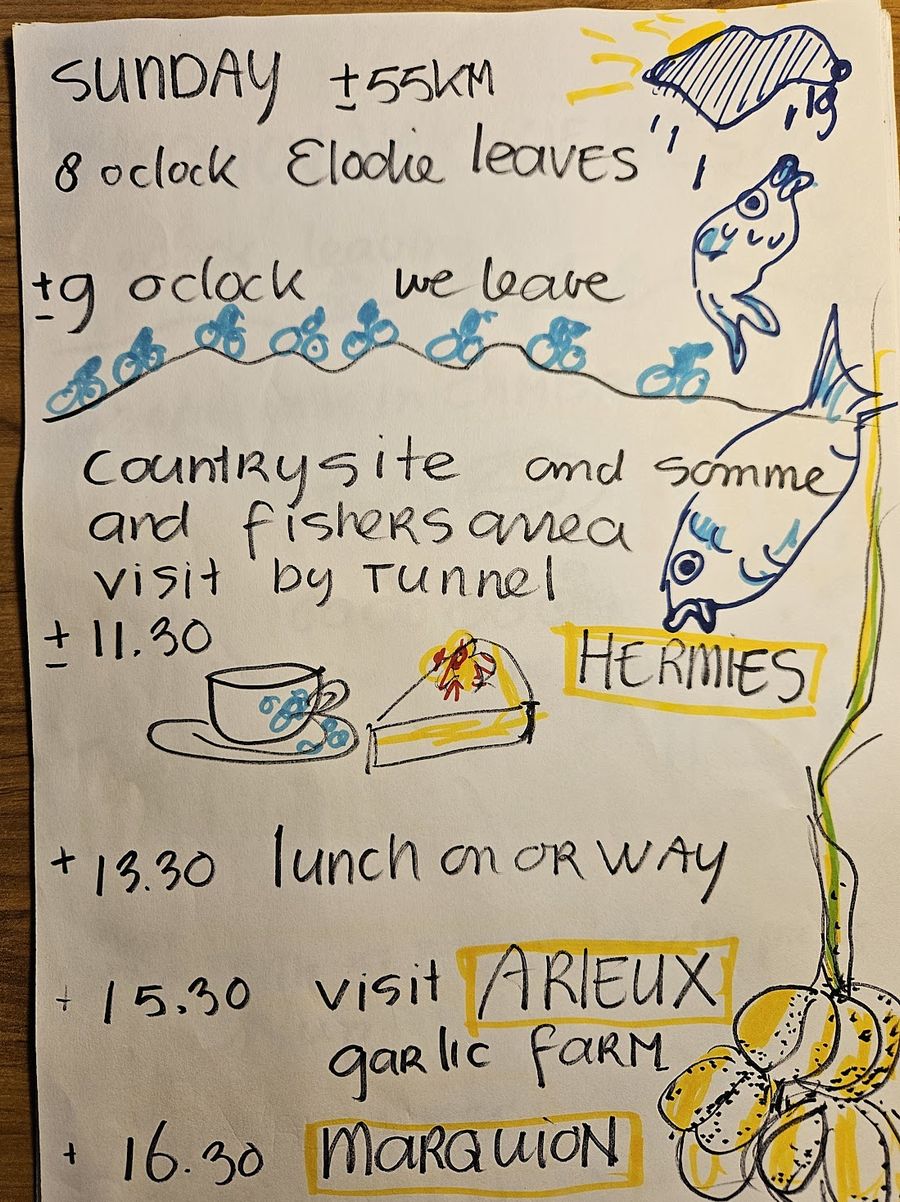 SUNDAY ±55KM
8 oclock Elodie leaves
±9 oclock we leave
Countrysite and somme
and fishers area
visit by Tunnel
± 11.30
HERMIES
+ 13.30 lunch on OR WAY
+ 15.30 visit ARIEUX
garlic farm
+ 16.30 MARQUION